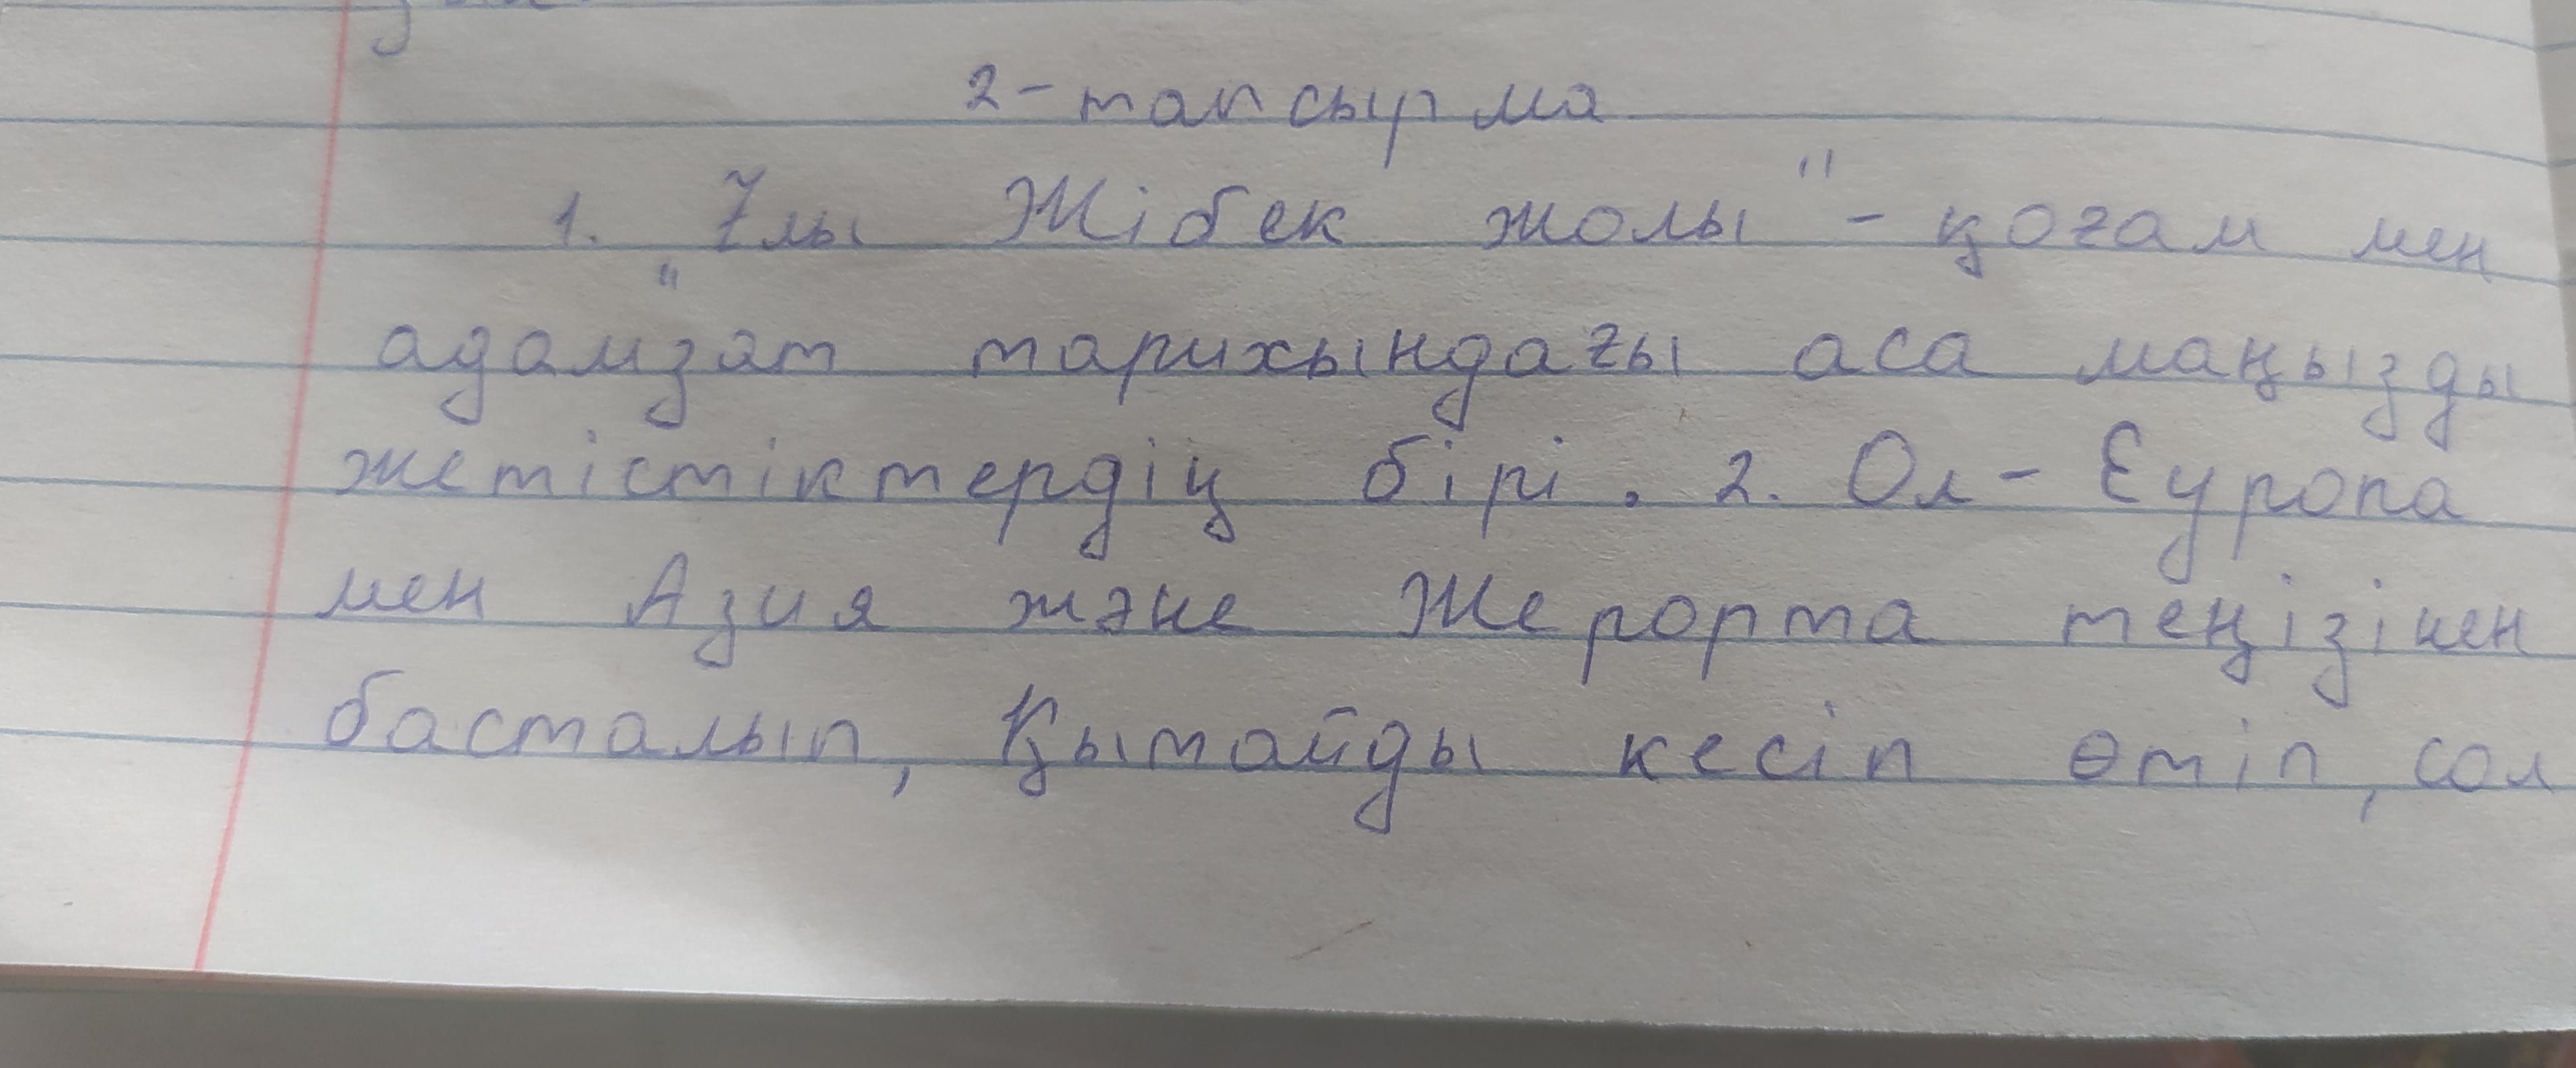 2-тапсырма
1. "Ұлы Жібек жолы" - қоғам мен
адамзат тарихындағы аса маңызды
жетістіктердің бірі. 2. Ол - Еуропа
мен Азия және Жерорта теңізінен
басталып, Қытайды кесіп өтіп, сол